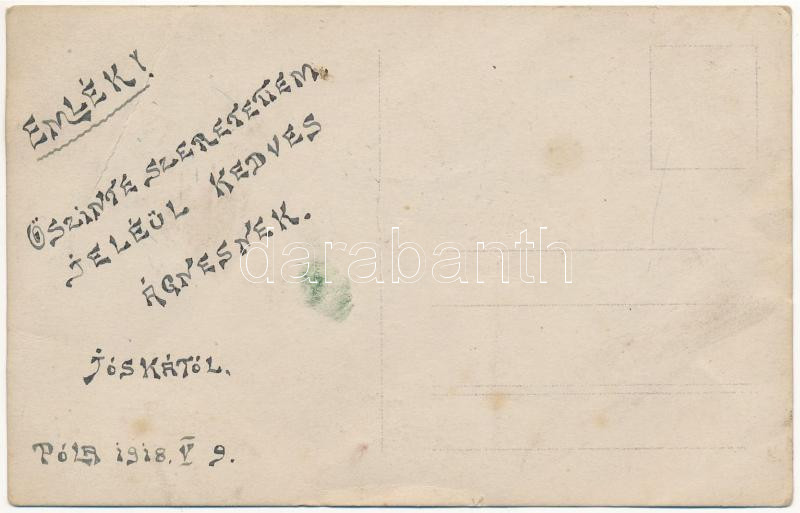 EMLÉK!
ŐSZINTE SZERETETTEM
JELÉÜL KEDVES
ÁGNESNEK.
JÓSKÁTÓL.
PÓLA 1918. V 9.
darabanth